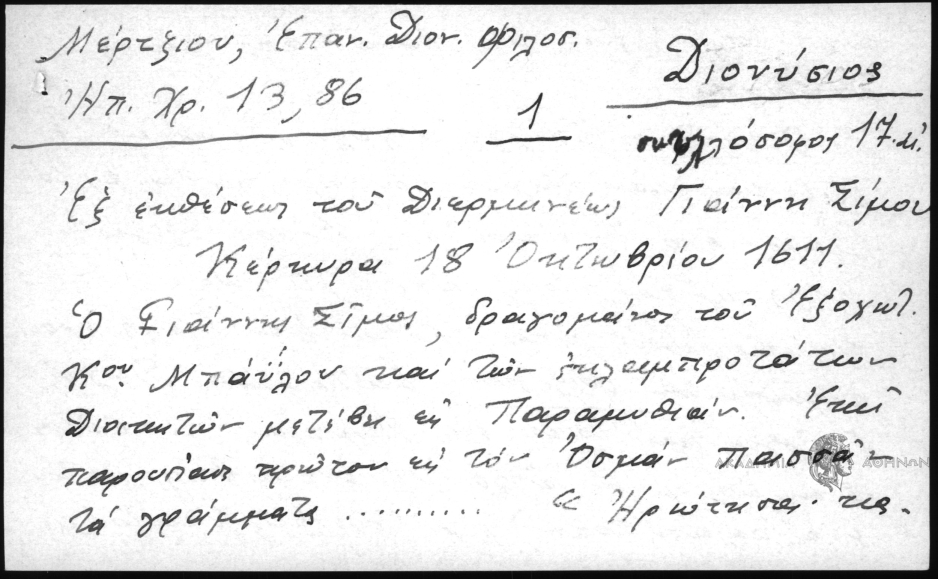 Μέρτζιου, Ἐπαν. Διον. Φιλοσ.
Ἠπ. Χρ. 13, 86
1
Διονύσιος
σκυλλόσοφος 17. αἰ.
Ἐξ ἐκθέσεως τοῦ Διερμηνέως Γιάννη Σίμου
Κέρκυρα 18 Ὀκτωβρίου 1611.
Ὁ Γιάννης Σῖμος, δραγομάνος τοῦ Ἐξοχωτ.
Κου Μπάϋλου καί τῶν ἐκλαμπροτάτων
Διοικητῶν μετέβη εἰς Παραμυθιάν. Ἐκεῖ
παρουσίασε πρῶτον εἰς τόν Ὀσμάν Πασσᾶν
τά γράμματα .......... « Ἠρώτησα
ΑΚΑΔΗΜΙΑ ΑΘΗΝΩΝ